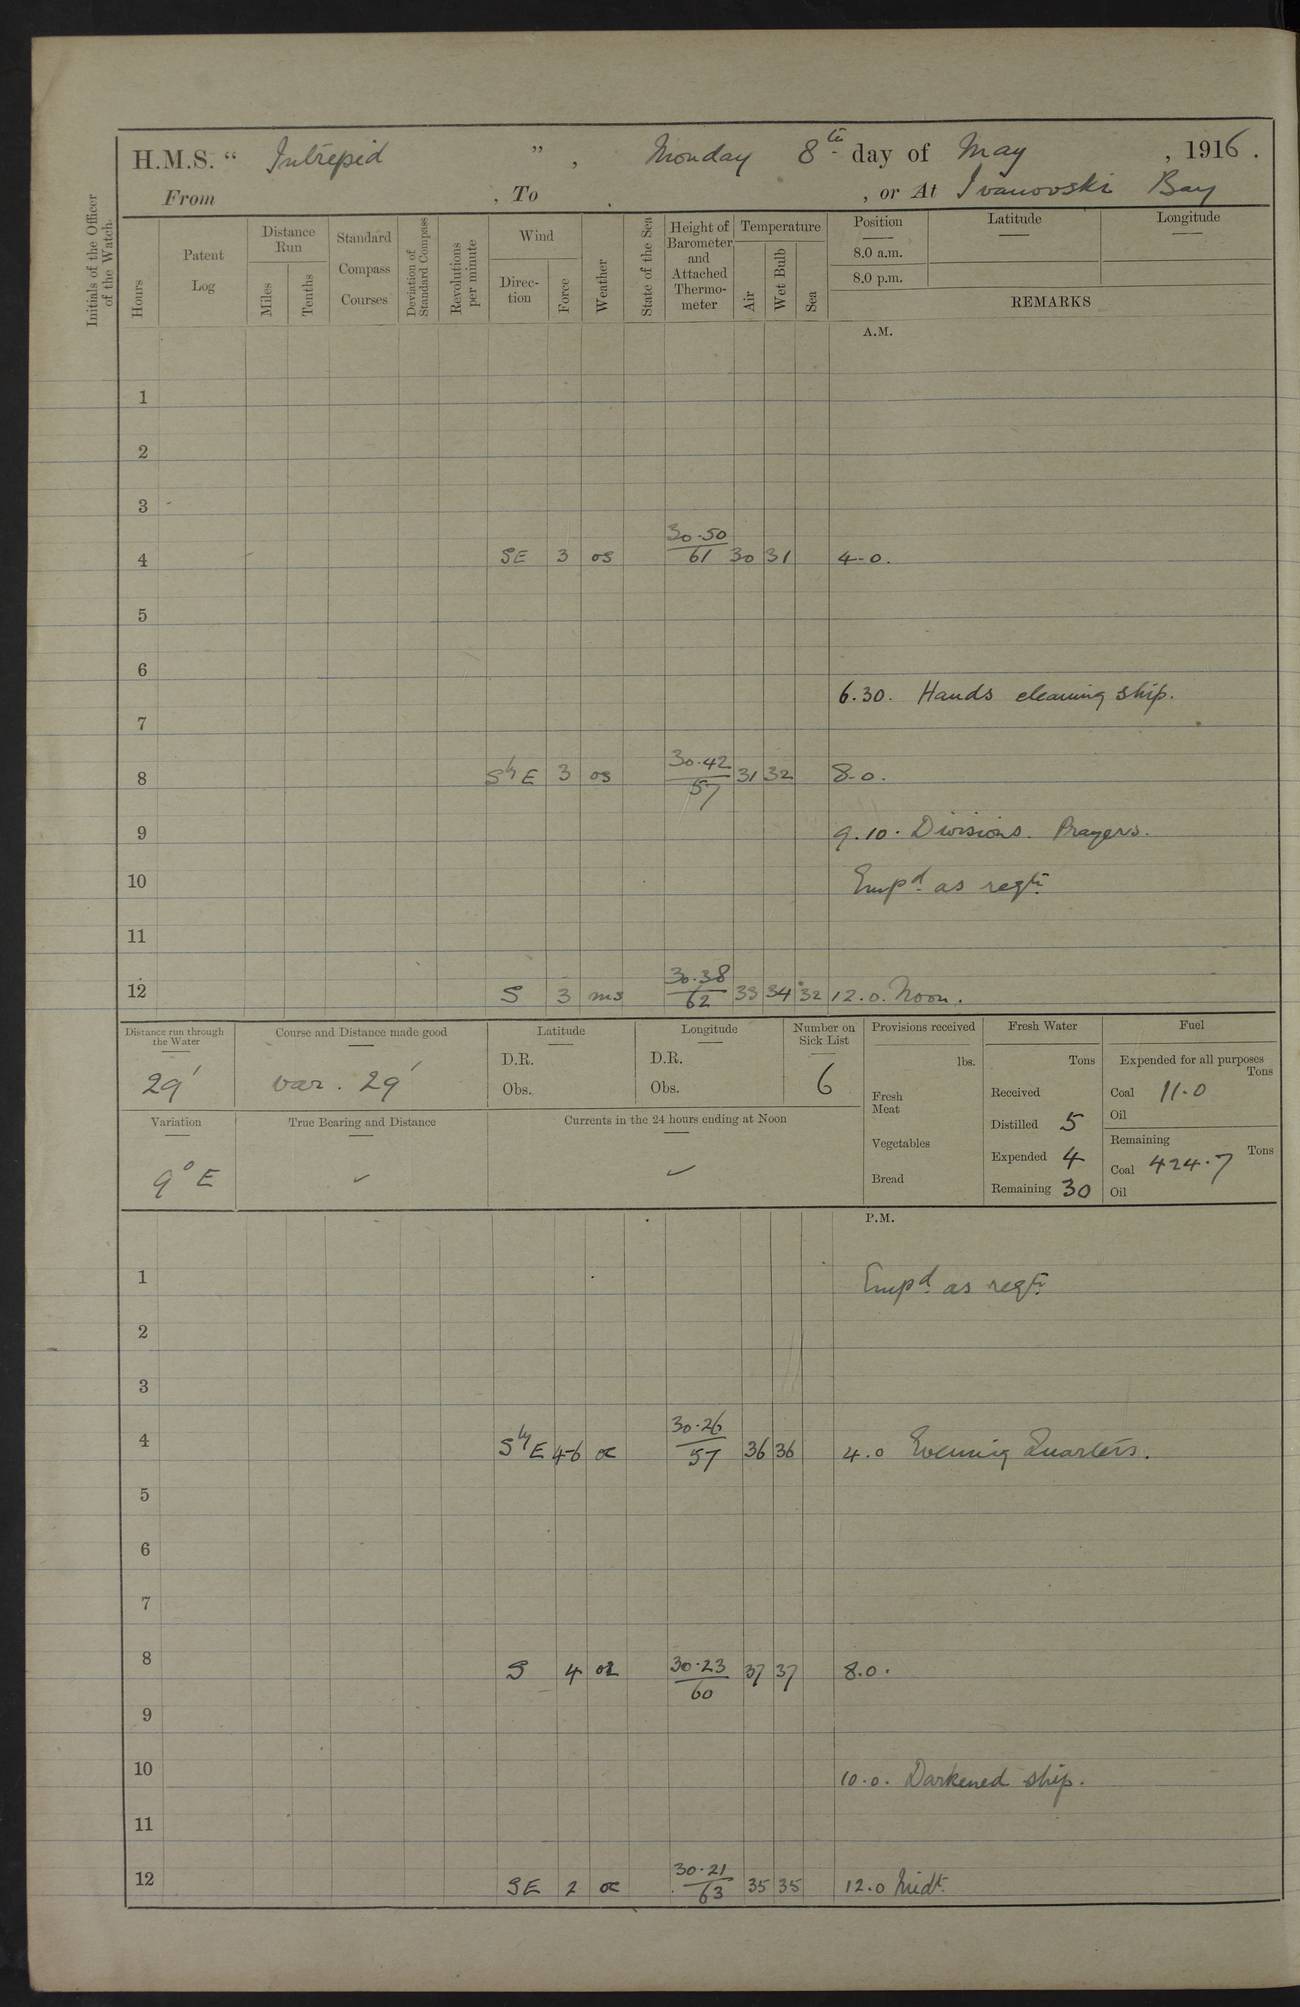 H.M.S. “ Intrepid ” , Monday 8th day of May , 1916 .
From , To , or At Ivanovski Bay
Initials of the Officer of the Watch.
Hours
Patent Log
Distance Run
Miles
Tenths
Standard Compass Courses
Deviation of Standard Compass
Revolutions per minute
Wind
Direction
Force
Weather
State of the Sea
Height of Barometer and Attached Thermometer
Temperature
Air
Wet Bulb
Sea
Position
Latitude
Longitude
8.0 a.m.
8.0 p.m.
REMARKS
A.M.
1
2
3
30.50
4 SE 3 os 61 30 31 4-0.
5
6
6.30. Hands cleaning ship.
7
30.42
8 SbyE 3 os 57 31 32 8-0.
9 9.10. Divisions. Prayers.
10 Empd. as reqte.
11
30.38
12 S 3 ms 62 33 34 32 12.0. Noon.
Distance run through the Water
29'
Course and Distance made good
var. 29'
Latitude
D.R.
Obs.
Longitude
D.R.
Obs.
Number on Sick List
6
Provisions received
lbs.
Fresh Meat
Vegetables
Bread
Fresh Water
Tons
Received
Distilled 5
Expended 4
Remaining 30
Fuel
Expended for all purposes
Tons
Coal 11.0
Oil
Remaining
Tons
Coal 424.7
Oil
Variation
9° E
True Bearing and Distance
✓
Currents in the 24 hours ending at Noon
✓
P.M.
1 Empd. as reqte.
2
3
30.26
4 SbyE 4-6 oc 57 36 36 4.0 Evening Quarters.
5
6
7
8 S 4 30.23 37 37 8.0.
60
9
10 10.0. Darkened ship.
11
30.21
12 SE 2 oc 63 35 35 12.0 Midt.